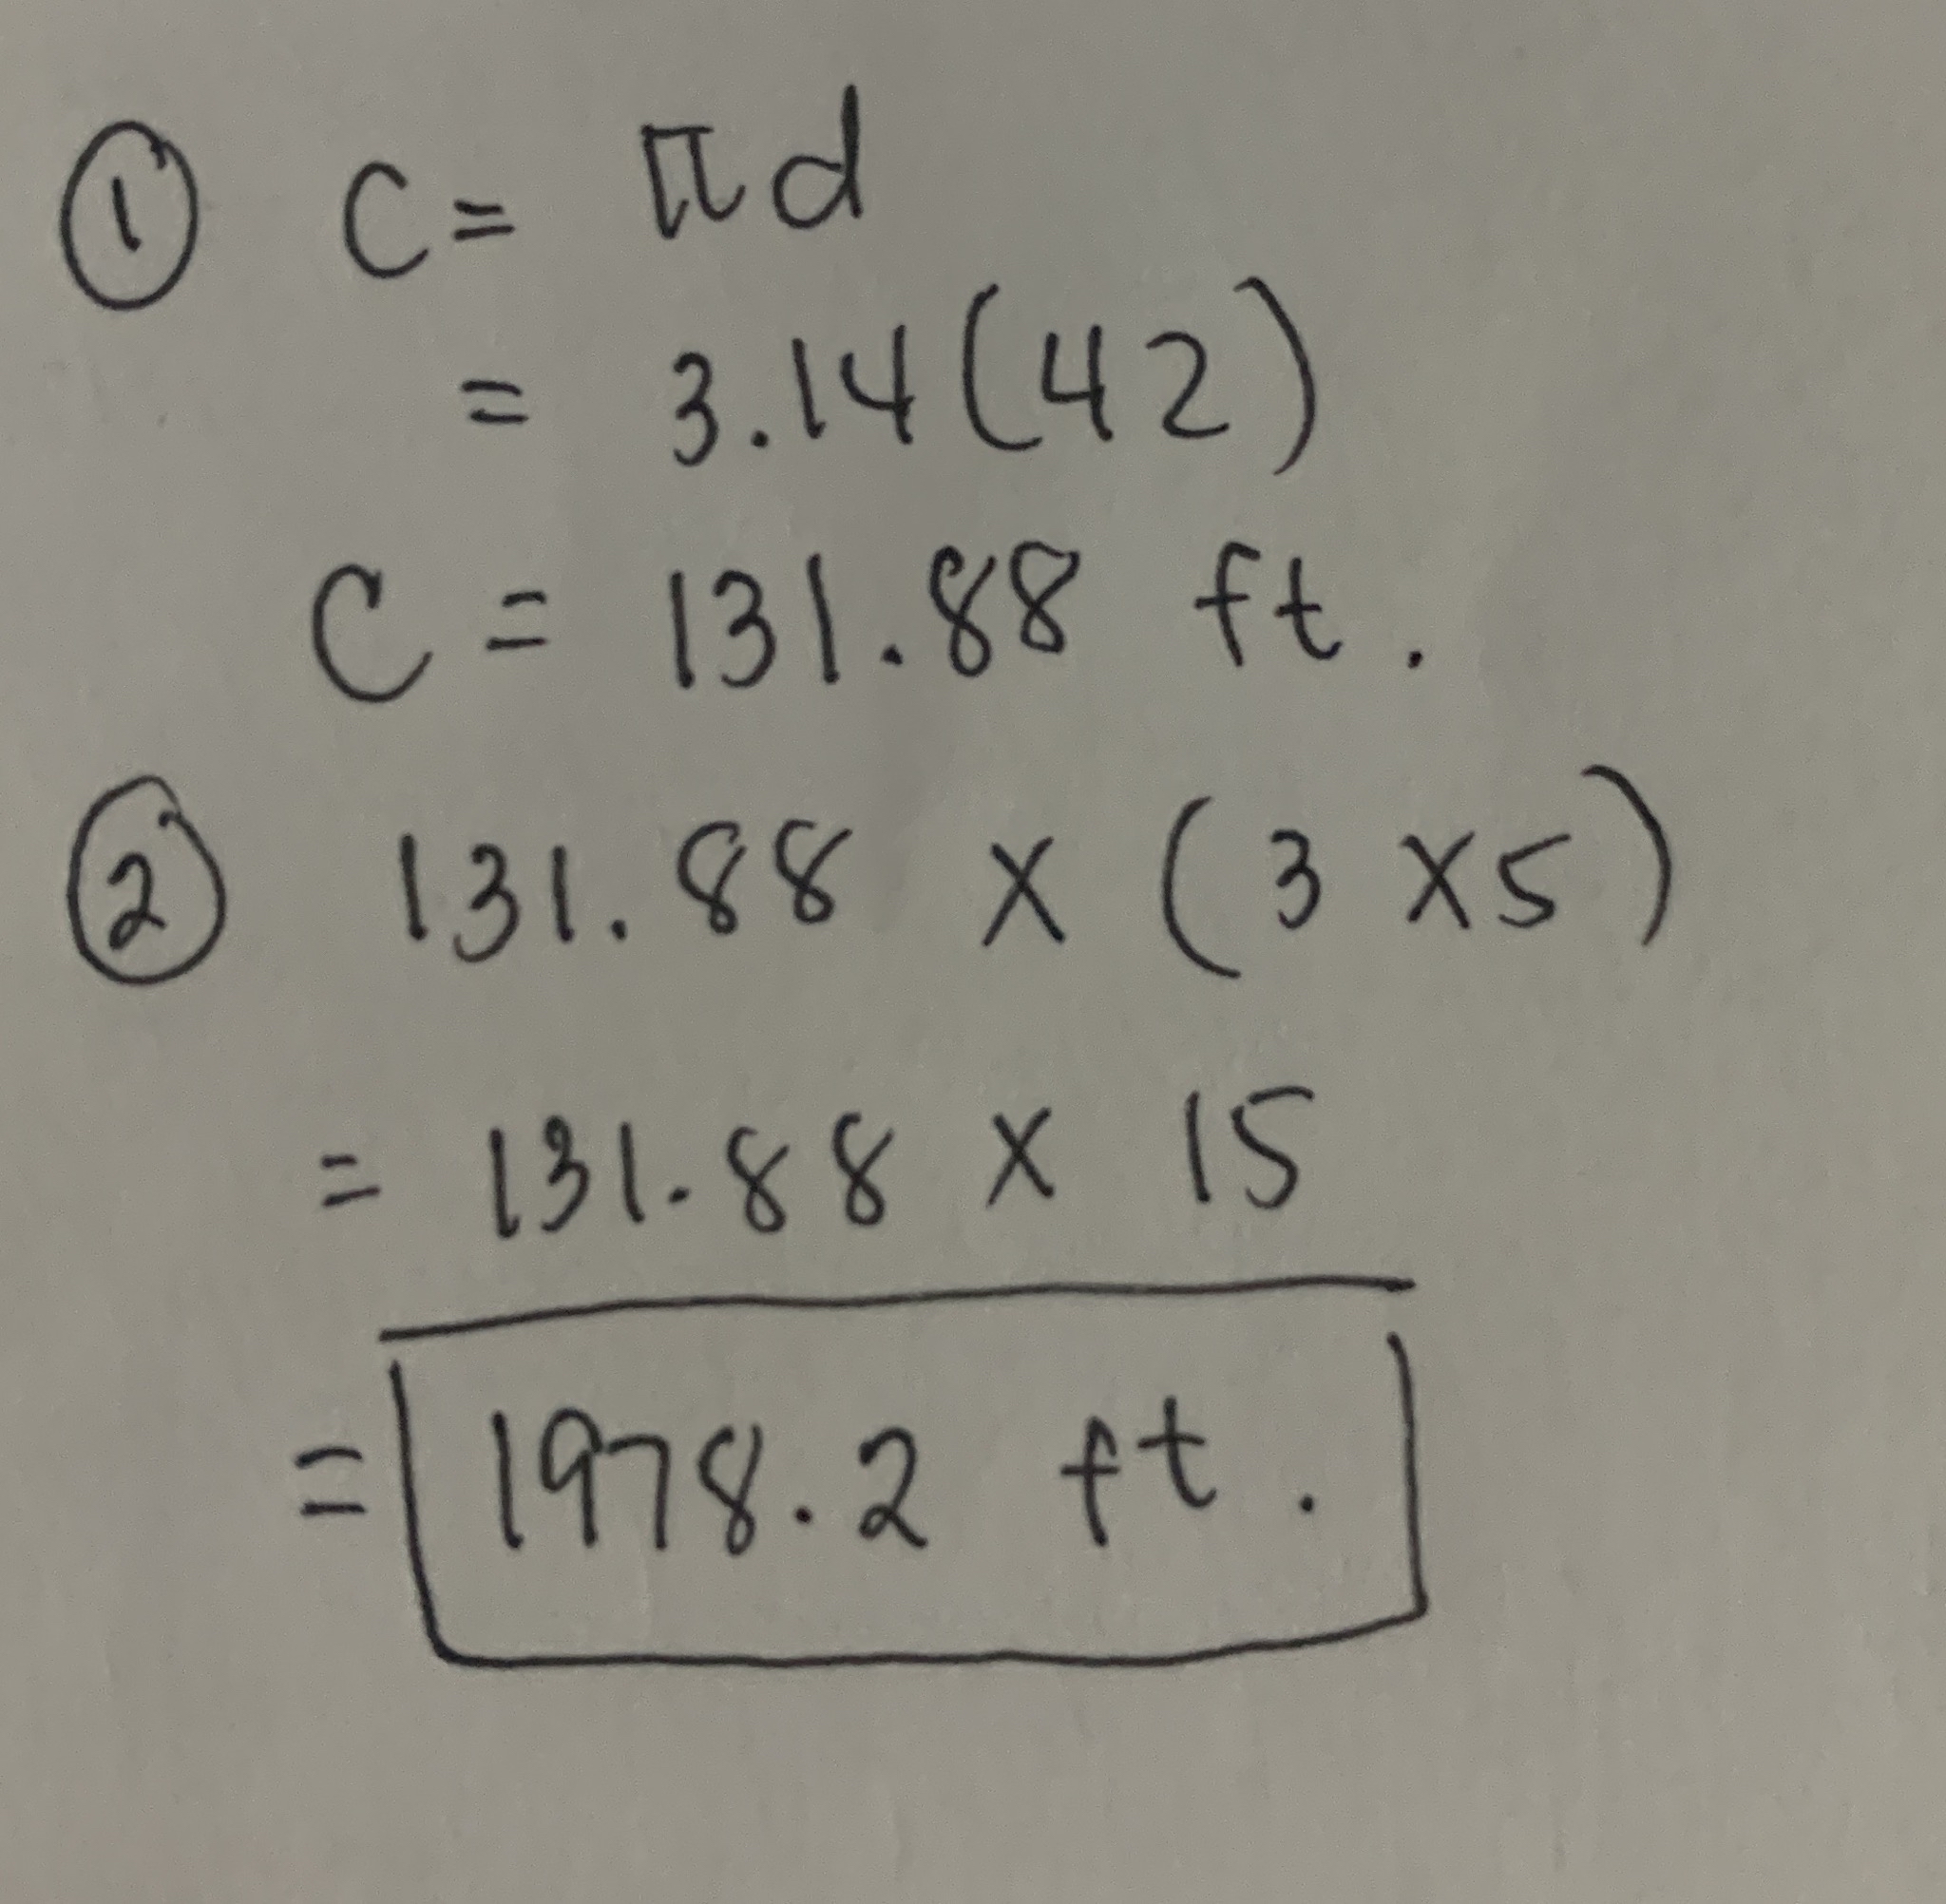 ① C = πd
= 3.14(42)
C = 131.88 ft.
② 131.88 x (3 x5)
= 131.88 x 15
= 1978.2 ft.